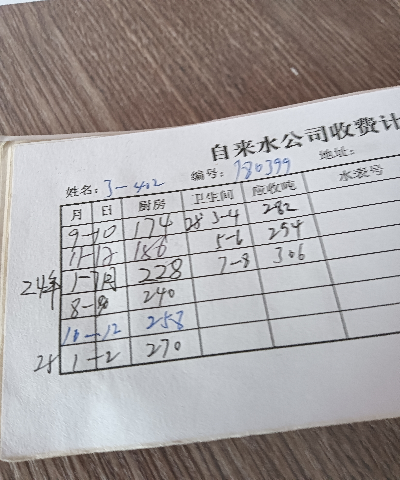 自来水公司收费计
姓名: 3-402 编号: 780399 地址:
月 日 厨房 卫生间 应收吨 水表号
9-10 174 25 3-4 282
11-12 186 5-6 294
24年 1-7月 228 7-8 306
8-9 240
10-12 258
25 1-2 270